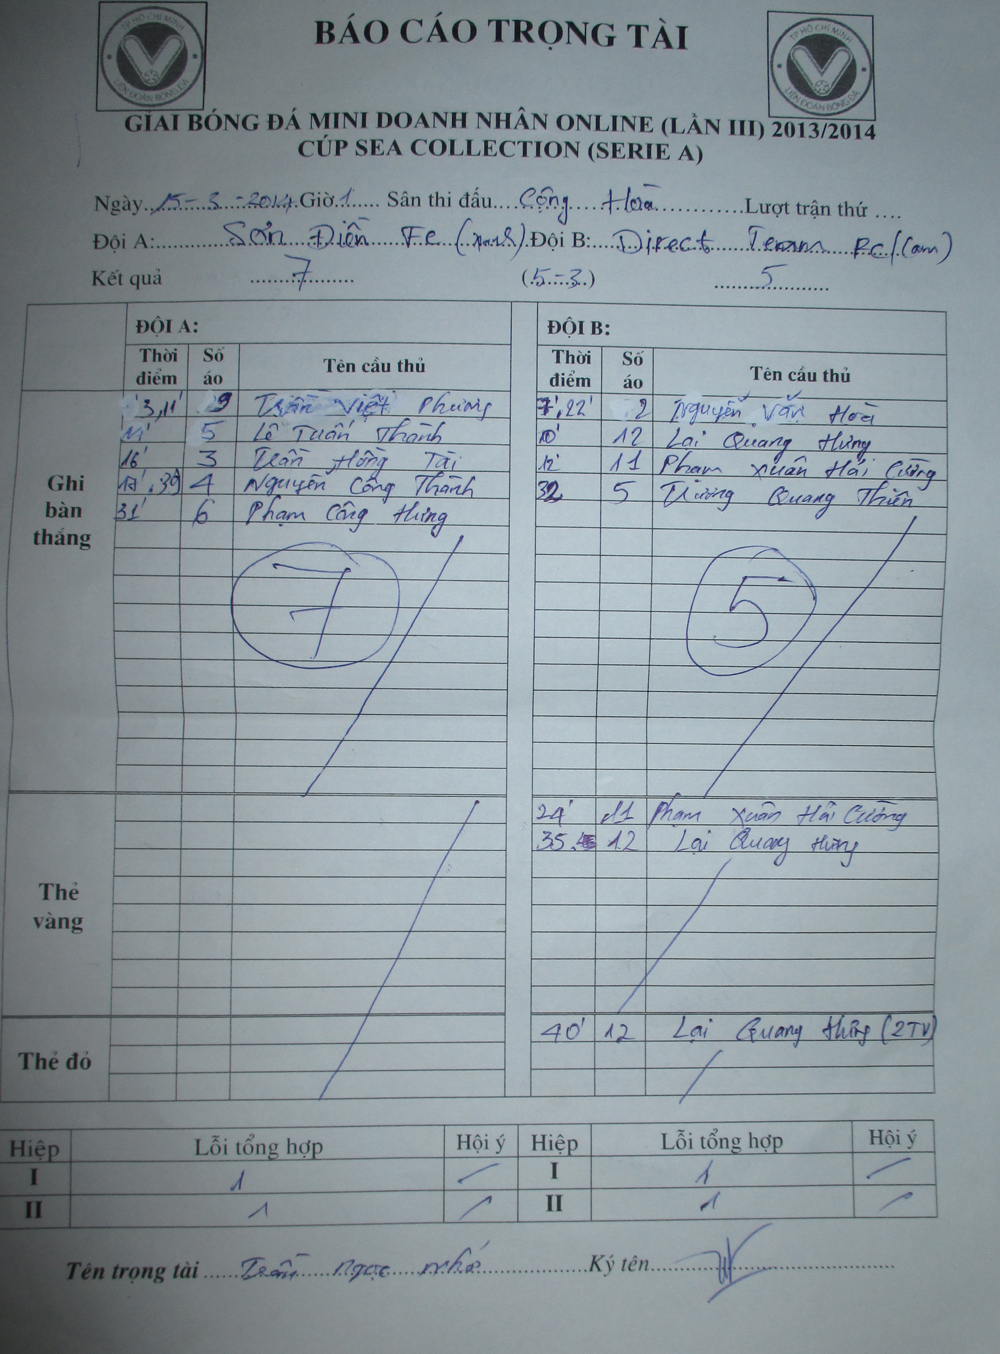 TP HỒ CHÍ MINH
LIÊN ĐOÀN BÓNG ĐÁ
TP HỒ CHÍ MINH
LIÊN ĐOÀN BÓNG ĐÁ
BÁO CÁO TRỌNG TÀI
GIẢI BÓNG ĐÁ MINI DOANH NHÂN ONLINE (LẦN III) 2013/2014
CÚP SEA COLLECTION (SERIE A)
Ngày 15-3-2014 Giờ 1 Sân thi đấu Cộng Hoà Lượt trận thứ ....
Đội A: Sơn Điền FC (xanh) Đội B: Direct Team FC (Cam)
Kết quả 7 (5-3) 5
ĐỘI A: ĐỘI B:
Thời điểm Số áo Tên cầu thủ Thời điểm Số áo Tên cầu thủ
Ghi bàn thắng
3', 11' 9 Trần Việt Phương 7', 22' 2 Nguyễn Văn Hoà
11' 5 Lê Tuấn Thành 10' 12 Lại Quang Hưng
16' 3 Trần Hồng Tài 12' 11 Phạm Xuân Hải Cường
39' 4 Nguyễn Công Thành 32 5 Trương Quang Thiên
31' 6 Phạm Công Hưng
7 5
Thẻ vàng
24' 11 Phạm Xuân Hải Cường
35 12 Lại Quang Hưng
Thẻ đỏ
40' 12 Lại Quang Hưng (2TV)
Hiệp Lỗi tổng hợp Hội ý Hiệp Lỗi tổng hợp Hội ý
I 1 I 1
II 1 II 1
Tên trọng tài Trần Ngọc Nhớ Ký tên